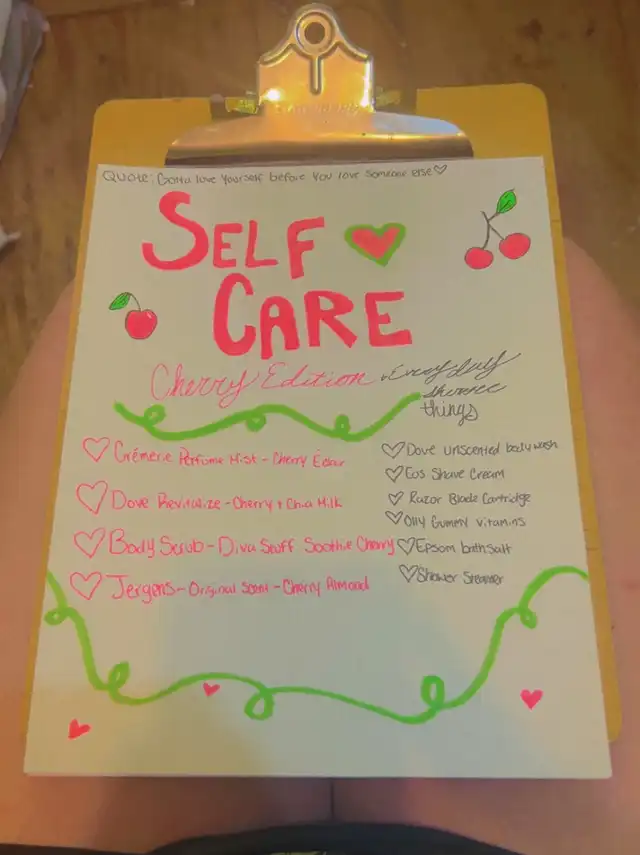 Quote: Gotta love yourself before you love someone else♡
SELF
CARE
Cherry Edition + Everyday
things
♡ Crémerie Perfume Mist - Cherry Éclair
♡ Dove Revitalize - Cherry + Chia Milk
♡ Body Scrub - Diva Stuff Soothie Cherry
♡ Jergens - Original Scent - Cherry Almond
♡ Dove unscented body wash
♡ Eos Shave Cream
♡ Razor Blade Cartridge
♡ Olly Gummy vitamins
♡ Epsom bath salt
♡ Shower Steamer